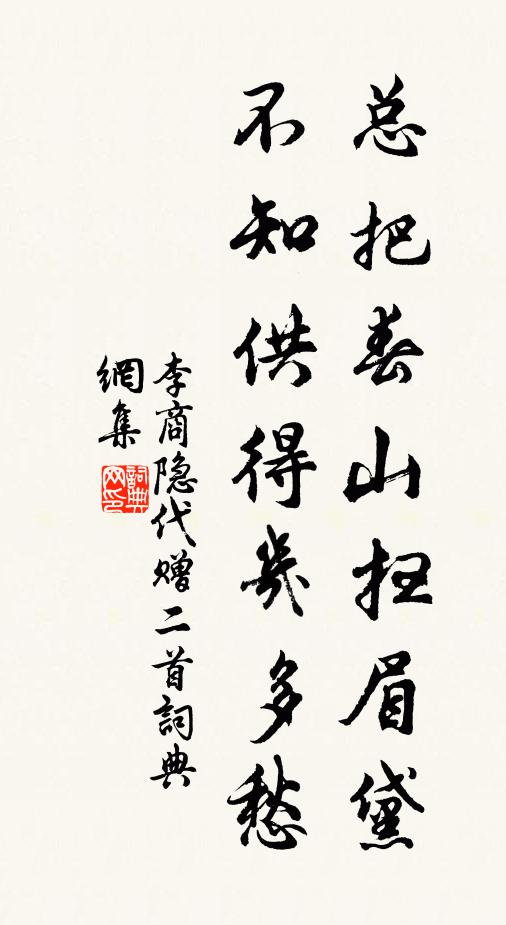 总把春山扫眉黛
不知供得幾多愁
李商隐代赠二首詞典
網集
詞典
网印